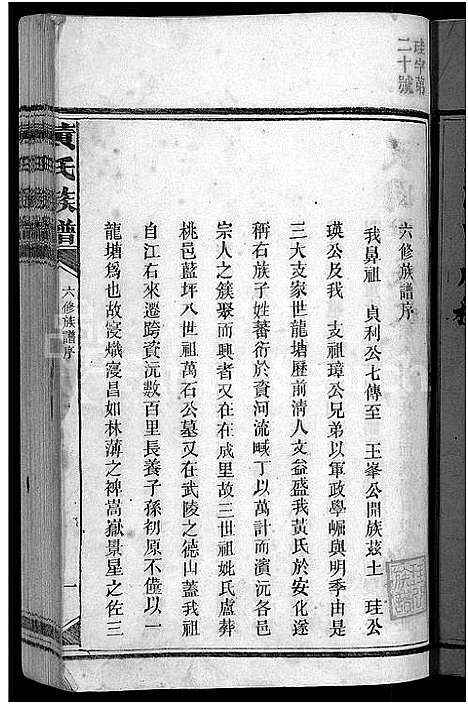 珪字第
二十號
六修族譜序
我鼻祖 貞利公七傳至 玉峯公開族茲土 珪公
瑛公及我 支祖璋公兄弟以軍政學崛興明季由是
三大支家世龍塘歷前清人文益盛我黃氏於安化遂
稱右族子姓蕃衍於資河流域丁以萬計而濱沅各邑
宗人之簇聚而興者又在在成里故三世祖妣氏盧葬
桃邑藍坪八世祖萬石公墓又在武陵之德山蓋我祖
自江右來遷跨資沅數百里長養子孫初原不僅以一
龍塘爲也故寖熾寖昌如林薄之裨嵩嶽景星之佐三
黃氏族譜
六修族譜序
一